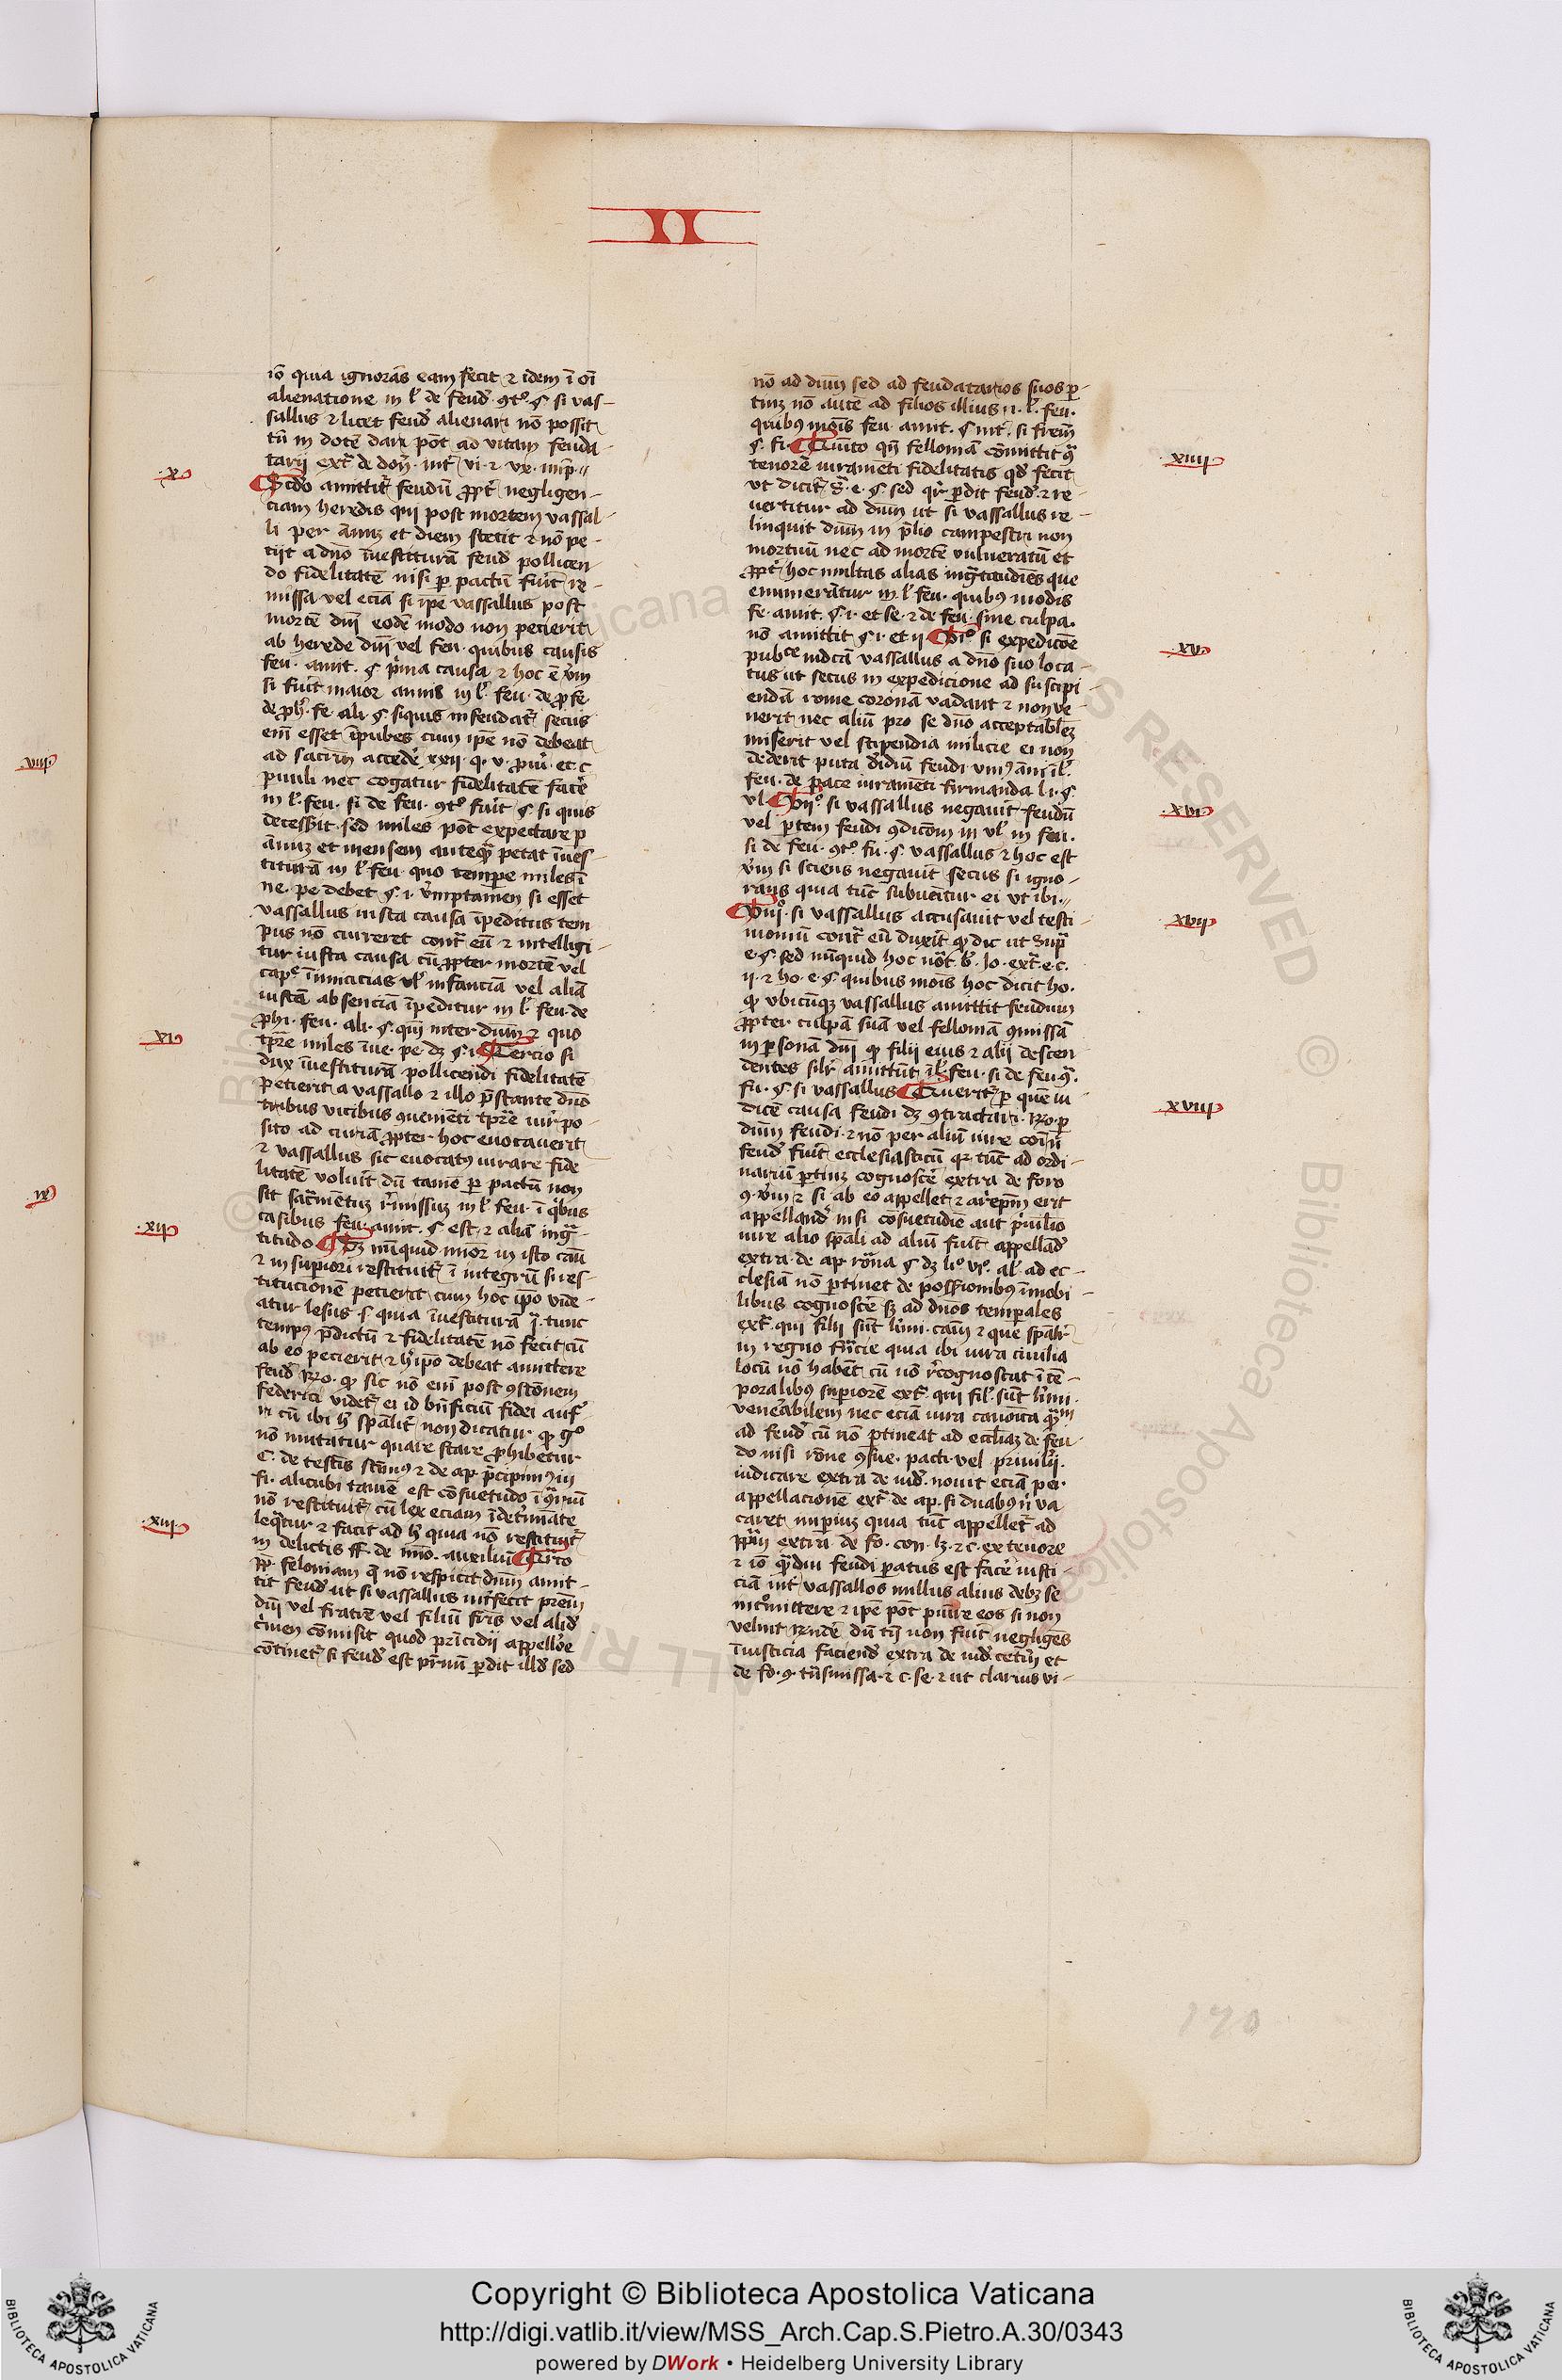 II
iō quia ignorās eam fecit ⁊ idem ī oī
alienatione in l' de feud' ꝯt° § si vas-
sallus ⁊ licet feud' alienari nō possit
tn̄ in dotē dari pōt ad vitam feuda-
tarij extᵃ de don̄ · int̄ · vi · ⁊ vx · imp̄ //
·x·
Scd̄o amittit᷑ feudū ꝓpt̄ negligen-
ciam heredis qui post mortem vassal-
li per annuꝫ et diem stetit ⁊ nō pe-
tijt a dn̄o īuestiturā feud' pollicen-
do fidelitatē nisi ꝑ pactū fuit re-
missa vel eciā si ip̄e vassallus post
mortē dn̄i eodē modo non pecierit
ab herede dn̄i vel feu · quibus causis
feu · amit · § p̄ma causa ⁊ hoc ē v̄m
si fuit maior annis in l' feu · de ꝓ fe
de ꝓh' · fe · ali · § siquis infeudat᷑ secus
em̄ esset īpubes cum ip̄e nō debeat
ad sacrm̄ accede᷑ xxij · q · v · pui᷑ · et c
piuuli nec cogatur fidelitatē face᷑
in l' · feu · si de feu · ꝯt° fuit § si quis
decesserit · sed miles pōt expectare ꝑ
annuꝫ et mensem anteqᵃ petat īues-
titurā in l' feu · quo tempore miles ī
ue · pe debet § · i · v̄mptamen si esset
vassallus iusta causa īpeditus tem
pus nō curreret contᵃ eū ⁊ intelligi-
tur iusta causa cū ꝓpter mortē vel
cap° īimicicias vl' infanciam vel aliā
iustā absenciā īpeditur in l' feu · de
ꝓhi · feu · ali · § · qm̄ inter dn̄m ⁊ quo
·xi·
tp̄re miles īue · pe · dꝫ § · i · Tercio si
dux īuestiturā pollicendi fidelitatē
petierit a vassallo ⁊ illo p̄stante dn̄s
tribus vicibus ꝯuenienti tp̄re
sito ad curiā ꝓpter hoc euocauerit
⁊ vassallus sic euocatꝰ iurare fide-
litatē voluit dū tamē ꝑ pactū non
sit sacᵃmētuꝫ r̄missuꝫ in l' feu · ī qⁱbus
·xij·
casibus feu · amit · § est ⁊ alia ingᵃ-
titudo Sꝫ nūquid mīor in isto casu
⁊ in superiori restituit᷑ ī integrū si ues-
titucionē petierit cum hoc ip̄o vide-
atur lesus · s · quia īuestiturā tunc
tempꝰ p̄dictū ⁊ fidelitatē nō fecit cū
ab eo pecierit ⁊ h' ip̄o debeat amittere
feud' Rn̄o · ꝙ sic nō em̄ post ꝯstōnem
federici videt᷑ ei id bn̄ficiū fidei auf᷑-
ri cū ibi h' sp̄alit᷑ non dicatur ꝙ g°
nō mutatur quare stare ꝓhibetur
C · de test̄is ⁊ de ap · p̄cipimꝰ in
fi · alicubi tamē est cōsuetudo
nō restituit᷑ cū lex eciam īdet᷑mināte
·xiij·
leqᵃtur ⁊ facit ad h' quia nō restituit᷑
in delictis ff · de mīo · auxiliū Qᵃrto
ꝓp̄ feloniam q̄ nō respicit dn̄m amit-
tit feud' ut si vassallus int᷑fecit pr̄em
dn̄i vel fratrē vel filiū fr̄is vel aliud'
crimen cōmisit quod pricidij appellōe
cōtinet᷑ si feud' est pr̄nū ꝑdit illd' sed
nō ad dn̄m sed ad feudatarios suos ꝑ-
tinꝫ nō autē ad filios illius · i · l' · feu ·
quibꝰ mōis feu · amit · § int᷑ · si frem̄
·xiiij·
§ · fi · Quinto qn̄ felloniā cōmittit ꝯᵃ
tenorē iuramēti fidelitatis qd' fecit
ut dicit᷑ · e · § · sed qr̄ ꝑdit feud' · ⁊ re-
uertitur ad dn̄m ut si vassallus re-
linquit dn̄m in p̄lio campestri non
mortuū nec ad mortē vulneratū et
ꝓpt᷑ hoc multas alias ingᵃtitudīes que
enumerātur in l' feu · quibꝰ modis
fe · amit · § · i · et se · ⁊ de feu · sine culpa ·
·xv·
nō amittit § i · et ij · Vi° si expedicōe
pub᷑ce indcā vassallus a dn̄o suo loca-
tus ut secus in expedicione ad suscipi-
endā rome coronā vadant ⁊ non ve-
nerit nec aliū pro se dn̄o acceptabilē
miserit vel stipendia milicie ei non
dederit puta d'idiū feudi vniꝰ āni ī l' ·
feu · de pace iuramēti firmanda l · i · §
·xvi·
vl Vij° si vassallus negauit feudū
vel ꝑtem feudi ꝯdicōm in vl' in feu ·
si de feu · ꝯt° fu · § · vassallus ⁊ hoc est
v̄m si sciens negauit secus si igno-
rans quia tūc subuenitur ei ut ibi //
·xvij·
Viij° · si vassallus accusauit vel testi-
moniū contᵃ eū duxit ꝙ dic ut supᵃ
e · § · sed nūquid hoc nōt · b' · Jo · extᵃ · e · c ·
ij · ⁊ ho · e · § · quibus mōis hoc dicit ho ·
ꝙ vbicūqꝫ vassallus amittit feudum
ꝓpter culpā suā vel felloniā ꝯmissā
in ꝑsonā dn̄i ꝙ filij eius ⁊ alij descen
dentes silr̄ amittūt ī l' feu · si de feu ꝯᵃ ·
·xviij·
fu · § · si vassallus Querit᷑ ꝑ quē iu-
dicē causa feudi dꝫ ꝯtractari · Rn̄o · ꝑ
dn̄m feudi · ⁊ nō per aliū iure cōi n̄
feud' fuit ecclesiasticū qr̄ tūc ad ordi-
nariū ꝑtinꝫ cognosce᷑ extra de foro
ꝯ · v̄m ⁊ si ab eo appellet᷑ ad erit
appelland' nisi cōsuetudīe aut p̄uilīo
iure alio sp̄ali ad aliū fuit appellād'
extra · de ap · rōᵃna § dꝫ li° vi° · al' · ad ec-
clesiā nō ꝑtinet de possessionibus īmobi-
libus cognosce᷑ sꝫ ad dn̄os temporales
extᵃ · qui filij sūt li̅mi · cām ⁊ que sp̄alit᷑
in regno fr̄cie quia ibi iura ciuilia
locū nō habēt cū nō r̄cognoscat ī tē-
poralibus superiorē extᵃ · qui fil' · sūt li̅mi
venerabilem nec eciā iura canoīca
ad feud' cū nō ꝑtineat ad eccl̄iaꝫ de feu-
do nisi rōne ꝯsue · pacti vel priuilij ·
iudicare extra de iud' · nouit eciā per
appellacionē extᵃ de ap · si duobꝰ n̄ va-
caret imperiuꝫ quia tūc appellet᷑ ad
extra · de fo · con · lꝫ · ⁊ c · ex tenore
⁊ iō qᵃdiu feudi ꝑatus est face᷑ iusti-
ciā int᷑ vassallos nullus alius debꝫ se
int᷑mittere ⁊ ip̄e pōt punire eos si non
velint dū tn̄ non fuit negligēs
ī iusticia faciend' extra de iud' cet᷑m̄ et
de fo · ꝯ · tn̄smissa · ⁊ c · se · ⁊ ut clarius vi-
·viij·
·ix·
120
Copyright © Biblioteca Apostolica Vaticana
http://digi.vatlib.it/view/MSS_Arch.Cap.S.Pietro.A.30/0343
powered by DWork • Heidelberg University Library
BIBLIOTECA APOSTOLICA VATICANA
BIBLIOTECA APOSTOLICA VATICANA